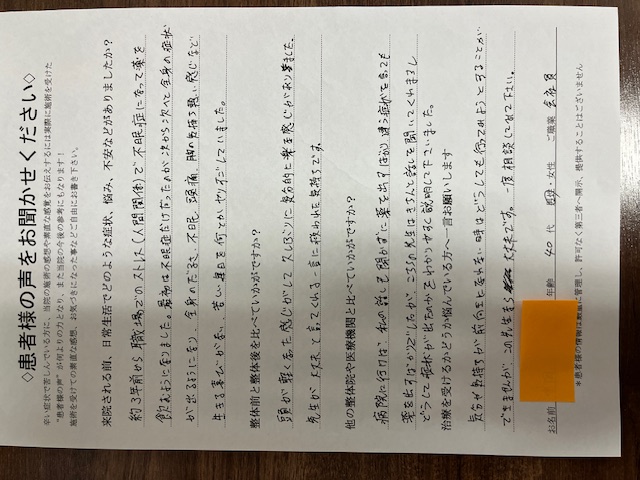 ◇患者様の声をお聞かせください◇
辛い症状で苦しんでいる方に、当院の施術の感想や素直な感覚をお伝えするには実際に施術を受けた
"患者様の声"が何よりの力となり、また当院の今後の参考にもなります！
施術を受けての素直な感想、お気づきになった事などご自由にお書き下さい。
来院される前、日常生活でどのような症状、悩み、不安などがありましたか？
約3年前から職場でのストレス(人間関係)で不眠症になって薬を
飲むようになりました。最初は不眠症だけだったのが次から次へと全身の症状
が出るようになり、全身のだるさ、不眠、頭痛、脚の気持ち悪い感じなど
生きる喜びがなく、苦しい毎日を何とかやり過ごしていました。
整体前と整体後を比べていかがですか？
頭が軽くなった感じがして久しぶりに気分的に楽な感じがありました。
先生が大丈夫と言ってくれる言葉に救われた気持ちです。
他の整体院や医療機関と比べていかがですか？
病院に行けば、私の話しも聞かずに薬を出すばかり、違う症状を言っても
薬を出すばかりでしたが、こちらの先生はきちんと話しを聞いてくれますし
どうして症状が出たのかをわかりやすく説明して下さいました。
治療を受けるかどうか悩んでいる方へ一言お願いします
気分や気持ちが前向きになれない時はどうしても諦めようとすることが
でますが、この先生なら大丈夫です。一度相談してみて下さい。
お名前 年齢 40代 男性・女性 ご職業 会社員
＊患者様の情報は厳重に管理し、許可なく第三者へ開示、提供することはございません